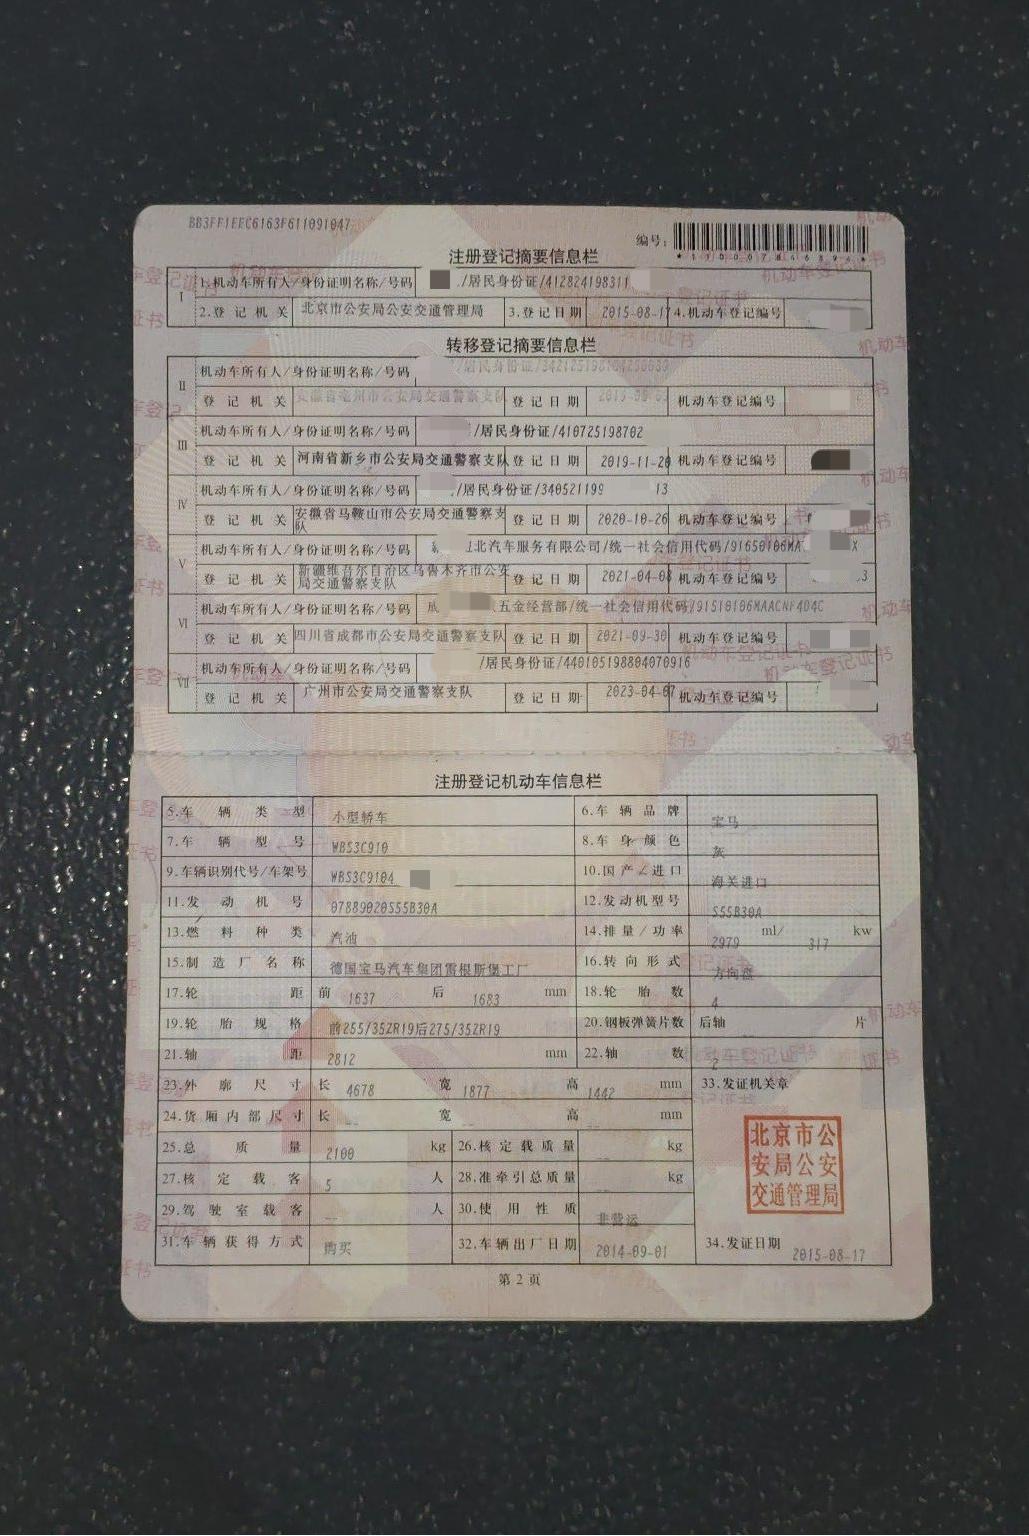 BB3FF1EFC6163F611091047
编号:
注册登记摘要信息栏
I 1.机动车所有人/身份证明名称/号码 /居民身份证/412824198311
2.登记机关 北京市公安局公安交通管理局 3.登记日期 2015-08-17 4.机动车登记编号
转移登记摘要信息栏
II 机动车所有人/身份证明名称/号码 /居民身份证/
登记机关 安徽省亳州市公安局交通警察支队 登记日期 机动车登记编号
III 机动车所有人/身份证明名称/号码 /居民身份证/410725198702
登记机关 河南省新乡市公安局交通警察支队 登记日期 2019-11-20 机动车登记编号
IV 机动车所有人/身份证明名称/号码 /居民身份证/340521199 13
登记机关 安徽省马鞍山市公安局交通警察支队 登记日期 2020-10-26 机动车登记编号
V 机动车所有人/身份证明名称/号码 北汽车服务有限公司/统一社会信用代码/91650106MA X
登记机关 新疆维吾尔自治区乌鲁木齐市公安局交通警察支队 登记日期 2021-04-08 机动车登记编号 3
VI 机动车所有人/身份证明名称/号码 五金经营部/统一社会信用代码/91510106MAACNF4D4C
登记机关 四川省成都市公安局交通警察支队 登记日期 2021-09-30 机动车登记编号
VII 机动车所有人/身份证明名称/号码 /居民身份证/440105198804070916
登记机关 广州市公安局交通警察支队 登记日期 2023-04-07 机动车登记编号
注册登记机动车信息栏
5.车辆类型 小型轿车 6.车辆品牌 宝马
7.车辆型号 WBS3C910 8.车身颜色 灰
9.车辆识别代号/车架号 WBS3C9104 10.国产/进口 海关进口
11.发动机号 07889020S55B30A 12.发动机型号 S55B30A
13.燃料种类 汽油 14.排量/功率 2979 ml/ 317 kw
15.制造厂名称 德国宝马汽车集团雷根斯堡工厂 16.转向形式 方向盘
17.轮距 前 1637 后 1683 mm 18.轮胎数 4
19.轮胎规格 前255/35ZR19后275/35ZR19 20.钢板弹簧片数 后轴 -- 片
21.轴距 2812 mm 22.轴数 2
23.外廓尺寸 长 4678 宽 1877 高 1442 mm 33.发证机关章
24.货厢内部尺寸 长 -- 宽 -- 高 -- mm
25.总质量 2100 kg 26.核定载质量 -- kg
27.核定载客 5 人 28.准牵引总质量 -- kg
29.驾驶室载客 -- 人 30.使用性质 非营运
31.车辆获得方式 购买 32.车辆出厂日期 2014-09-01 34.发证日期 2015-08-17
北京市公
安局公安
交通管理局
第2页